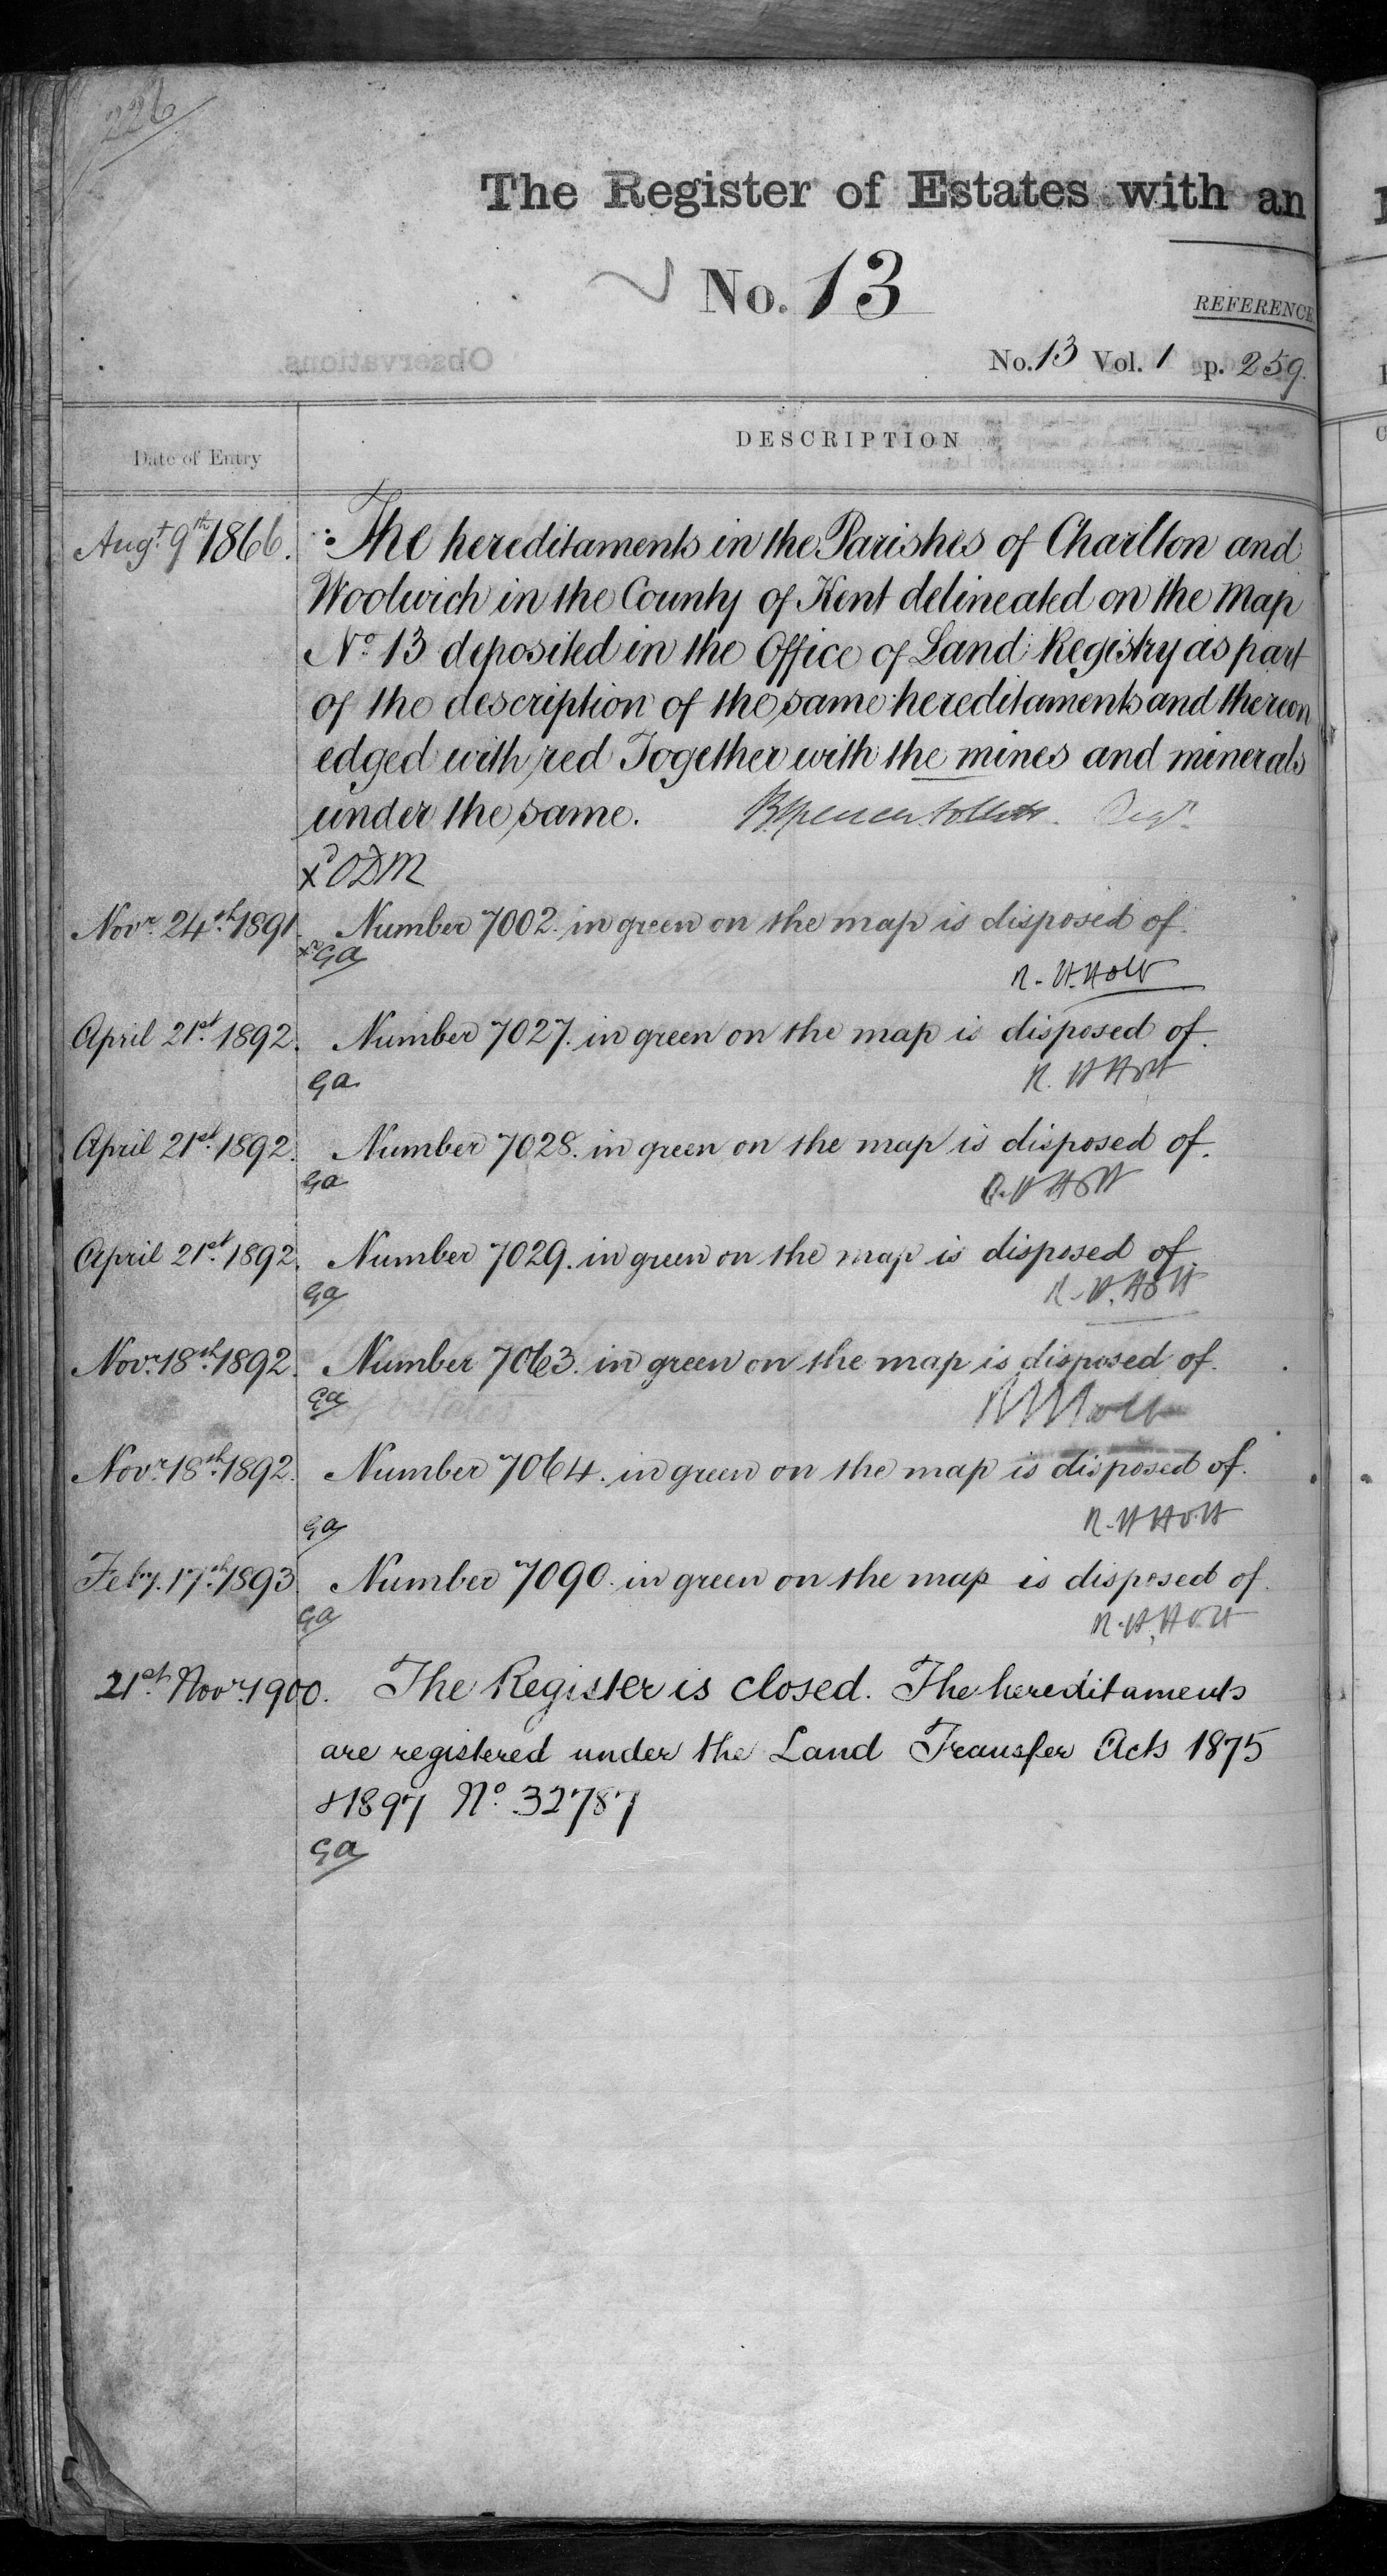 226
The Register of Estates with an
No. 13
REFERENCE
No. 13 Vol. 1 p. 259.
Observations.
Date of Entry
DESCRIPTION
Augt. 9th 1866. The hereditaments in the Parishes of Charlton and
Woolwich in the County of Kent delineated on the Map
No. 13 deposited in the Office of Land Registry as part
of the description of the same hereditaments and thereon
edged with red Together with the mines and minerals
under the same.
Novr. 24th. 1891. Number 7002. in green on the map is disposed of.
xd Ga
R. H. Holt
April 21st. 1892. Number 7027. in green on the map is disposed of.
Ga
R. H Holt
April 21st. 1892. Number 7028. in green on the map is disposed of.
Ga
R. H Holt
April 21st. 1892. Number 7029. in green on the map is disposed of.
Ga
R. H. Holt
Novr. 18th. 1892. Number 7063. in green on the map is disposed of.
Ga
R H Holt
Novr. 18th. 1892. Number 7064. in green on the map is disposed of.
Ga
R. H Holt
Feby. 17th. 1893. Number 7090. in green on the map is disposed of.
Ga
R. H. Holt
21st. Novr. 1900. The Register is closed. The hereditaments
are registered under the Land Transfer Acts 1875
& 1897 No. 32787
Ga